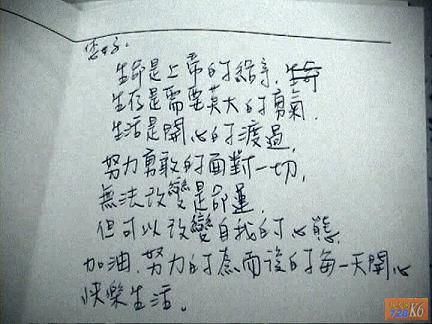 生命是上帝的給予.
生存是需要莫大的勇氣.
生活是開心的渡過,
努力勇敢的面對一切,
無法改變是命運
但可以改變自我的心態.
加油.努力的為而後的每一天開心
快樂生活。
K6